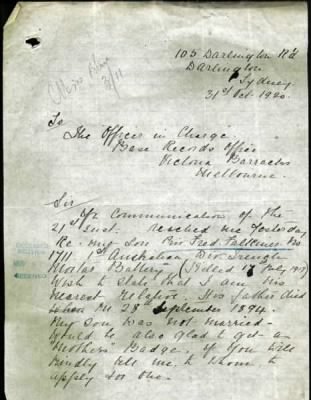 Miss
3/11
105 Darlington Rd
Darlington
Sydney
31st Oct 1920.
To
The Officer in Charge.
Base Records Office
Victoria Barracks
Melbourne.
Sir
Communication of the
21st Inst. reached me yesterday
Re. my Son Fred No
1711 1st Australian Div Trench
Mortar Battery (Killed July 1917)
Wish to state that I am his
nearest Relative. His father died
on 28th September 1894.
My Son was not married.
Would be also glad to get a
"Mothers" Badge, if you will
kindly tell me to whom to
apply for one.